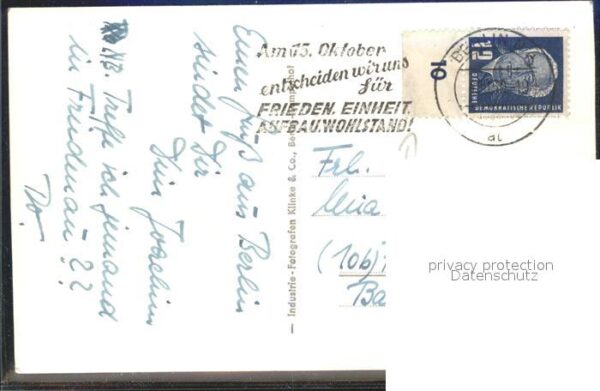 Am 15. Oktober
entscheiden wir uns
für
FRIEDEN, EINHEIT,
AUFBAU, WOHLSTAND!
BERLIN
10
12
DEUTSCHE
DEMOKRATISCHE REPUBLIK
Einen Gruß aus Berlin
sendet Dir
Dein Joachim
NB. Treffe ich jemand
in Friedenau??
D.O.
Industrie-Fotografen Klinke & Co., Berlin
Frl.
(10b)
privacy protection
Datenschutz